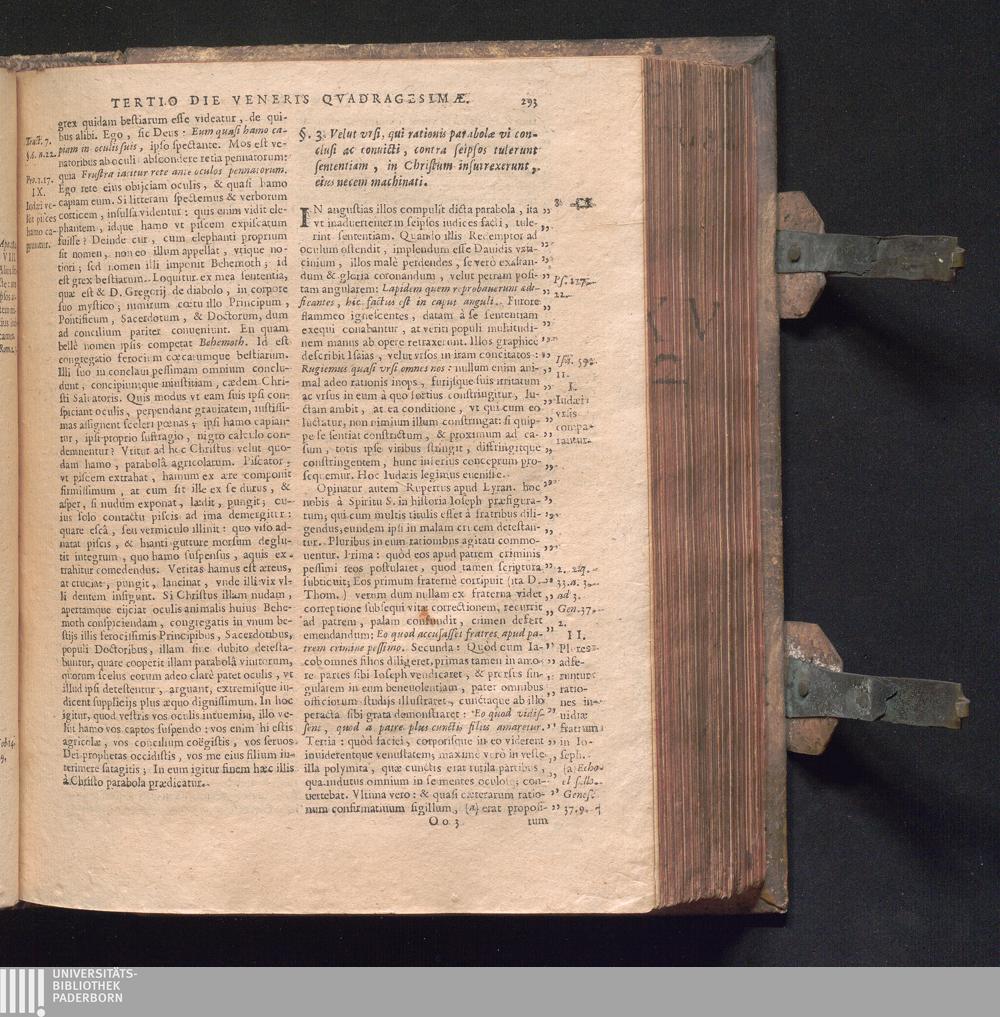 TERTIO DIE VENERIS QVADRAGESIMÆ.
293
grex quidam bestiarum esse videatur, de qui-
bus alibi. Ego, sic Deus: Eum quasi hamo ca-
piam in oculis suis, ipso spectante. Mos est ve-
natoribus ab oculis abscondere retia pennatorum:
quia Frustra iacitur rete ante oculos pennatorum.
Ego rete eius obijciam oculis, & quasi hamo
capiam eum. Si litteram spectemus & verborum
corticem, insulsa videntur: quis enim vidit ele-
phantem, idque hamo vt piscem expiscatum
fuisse? Deinde cur, cum elephanti proprium
sit nomen, non eo illum appellat, vtique no-
tiori; sed nomen illi imponit Behemoth; id
est grex bestiarum. Loquitur ex mea sententia,
quæ est & D. Gregorij de diabolo, in corpore
suo mystico; nimirum cœtu illo Principum,
Pontificum, Sacerdotum, & Doctorum, dum
ad concilium pariter conueniunt. En quam
bellè nomen ipsis competat Behemoth. Id est
congregatio ferocium cœcarumque bestiarum.
Illi suo in conclaui pessimam omnium conclu-
dunt, concipiuntque iniustitiam, cædem Chri-
sti Saluatoris. Quis modus vt eam suis ipsi con-
spiciant oculis, perpendant grauitatem, iustissi-
mas assignent sceleri pœnas, ipsi hamo capian-
tur, ipsi proprio suffragio, nigro calculo con-
demnentur? Vtitur ad hoc Christus velut quo-
dam hamo, parabolâ agricolarum. Piscator,
vt piscem extrahat, hamum ex ære componit
firmissimum, at cum sit ille ex se durus, &
asper, si nudum exponat, lædit, pungit; cu-
ius solo contactu piscis ad ima demergitur:
quare escâ, seu vermiculo illinit: quo viso ad-
natat piscis, & hianti gutture morsum deglu-
tit integrum, quo hamo suspensus, aquis ex-
trahitur comedendus. Veritas hamus est æreus,
at cruciat, pungit, lancinat, vnde illi vix vl-
li dentem infigunt. Si Christus illam nudam,
apertamque eijciat oculis animalis huius Behe-
moth conspiciendam, congregatis in vnum be-
stijs illis ferocissimis Principibus, Sacerdotibus,
populi Doctoribus, illam sine dubito detesta-
buntur, quare cooperit illam parabolâ vinitorum,
quorum scelus eorum adeo clarè patet oculis, vt
illud ipsi detestentur, arguant, extremisque iu-
dicent supplicijs plus æquo dignissimum. In hoc
igitur, quod vestris vos oculis intuemini, illo ve-
lut hamo vos captos suspendo: vos enim hi estis
agricolæ, vos concilium coëgistis, vos seruos
Dei prophetas occidistis, vos me eius filium in-
terimere satagitis; In eum igitur finem hæc illis
à Christo parabola prædicatur.
Tract. 7.
§.6. n.22.
Pro.1.17.
IX.
Iudæi ve-
lut pisces
hamo ca-
piuntur.
§. 3. Velut vrsi, qui rationis parabolæ vi con-
clusi ac conuicti, contra seipsos tulerunt
sententiam, in Christum insurrexerunt,
eius necem machinati.
IN angustias illos compulit dicta parabola, ita
vt inaduertenter in seipsos iudices facti, tule-
rint sententiam. Quando illis Redemptor ad
oculum ostendit, implendum esse Dauidis vati-
cinium, illos malè perdendes, se verò exaltan-
dum & gloria coronandum, velut petram posi-
tam angularem: Lapidem quem reprobauerunt ædi-
ficantes, hic factus est in caput anguli. Furore
flammeo ignescentes, datam à se sententiam
exequi conabantur, at veriti populi multitudi-
nem manus ab opere retraxerunt. Illos graphicè
describit Isaias, velut vrsos in iram concitatos:
Rugiemus quasi vrsi omnes nos: nullum enim ani-
mal adeo rationis inops, furijsque suis irritatum
ac vrsus in eum à quo fortius constringitur, lu-
ctam ambit, at ea conditione, vt qui cum eo
luctatur, non nimium illum constringat: si quip-
pe se sentiat constrictum, & proximum ad ca-
sum, totis ipse viribus stringit, distringitque
constringentem, hunc inferius conceptum pro-
sequemur. Hoc Iudæis legimus euenisse.
Opinatur autem Rupertus apud Lyran. hoc
nobis à Spiritu S. in historia Ioseph præfigura-
tum; qui cum multis titulis esset à fratribus dili-
gendus, eundem ipsi in malam crucem detestan-
tur. Pluribus in eum rationibus agitati commo-
uentur. Prima: quòd eos apud patrem criminis
pessimi reos postularet, quod tamen scriptura
subticuit; Eos primum fraternè corripuit (ita D.
Thom.) verum dum nullam ex fraterna videt
correptione subsequi vitæ correctionem, recurrit
ad patrem, palam confundit, crimen defert
emendandum: Eo quod accusasset fratres apud pa-
trem crimine pessimo. Secunda: Quòd cum Ia-
cob omnes filios diligeret, primas tamen in amo-
re partes sibi Ioseph vendicaret, & prorsus sin-
gularem in eum beneuolentiam, pater omnibus
officiorum studijs illustraret, cunctaque ab illo
peracta sibi grata demonstraret: Eo quod vidis-
sent, quod à patre plus cunctis filiis amaretur.
Tertia: quòd faciei, corporisque in eo viderent
inuiderentque venustatem; maxime verò in veste
illa polymita, quæ cunctis erat rutila partibus,
qua indutus omnium in se mentes oculosq; con-
uertebat. Vltima vero: & quasi cæterarum ratio-
num confirmatiuum sigillum, (a) erat proposi-
Ps. 117.
22.
Isa. 59.
11.
I.
Iudæi
vrsis
compa-
rantur.
2. 2. q.
33. a. 3.
ad 3.
Gen. 37.
2.
II.
Plures
adfe-
runtur
ratio-
nes in-
uidiæ
fratrum
in Io-
seph.
(a) Echo-
Genes.
37. 9.
Oo 3
tum
UNIVERSITÄTS-
BIBLIOTHEK
PADERBORN